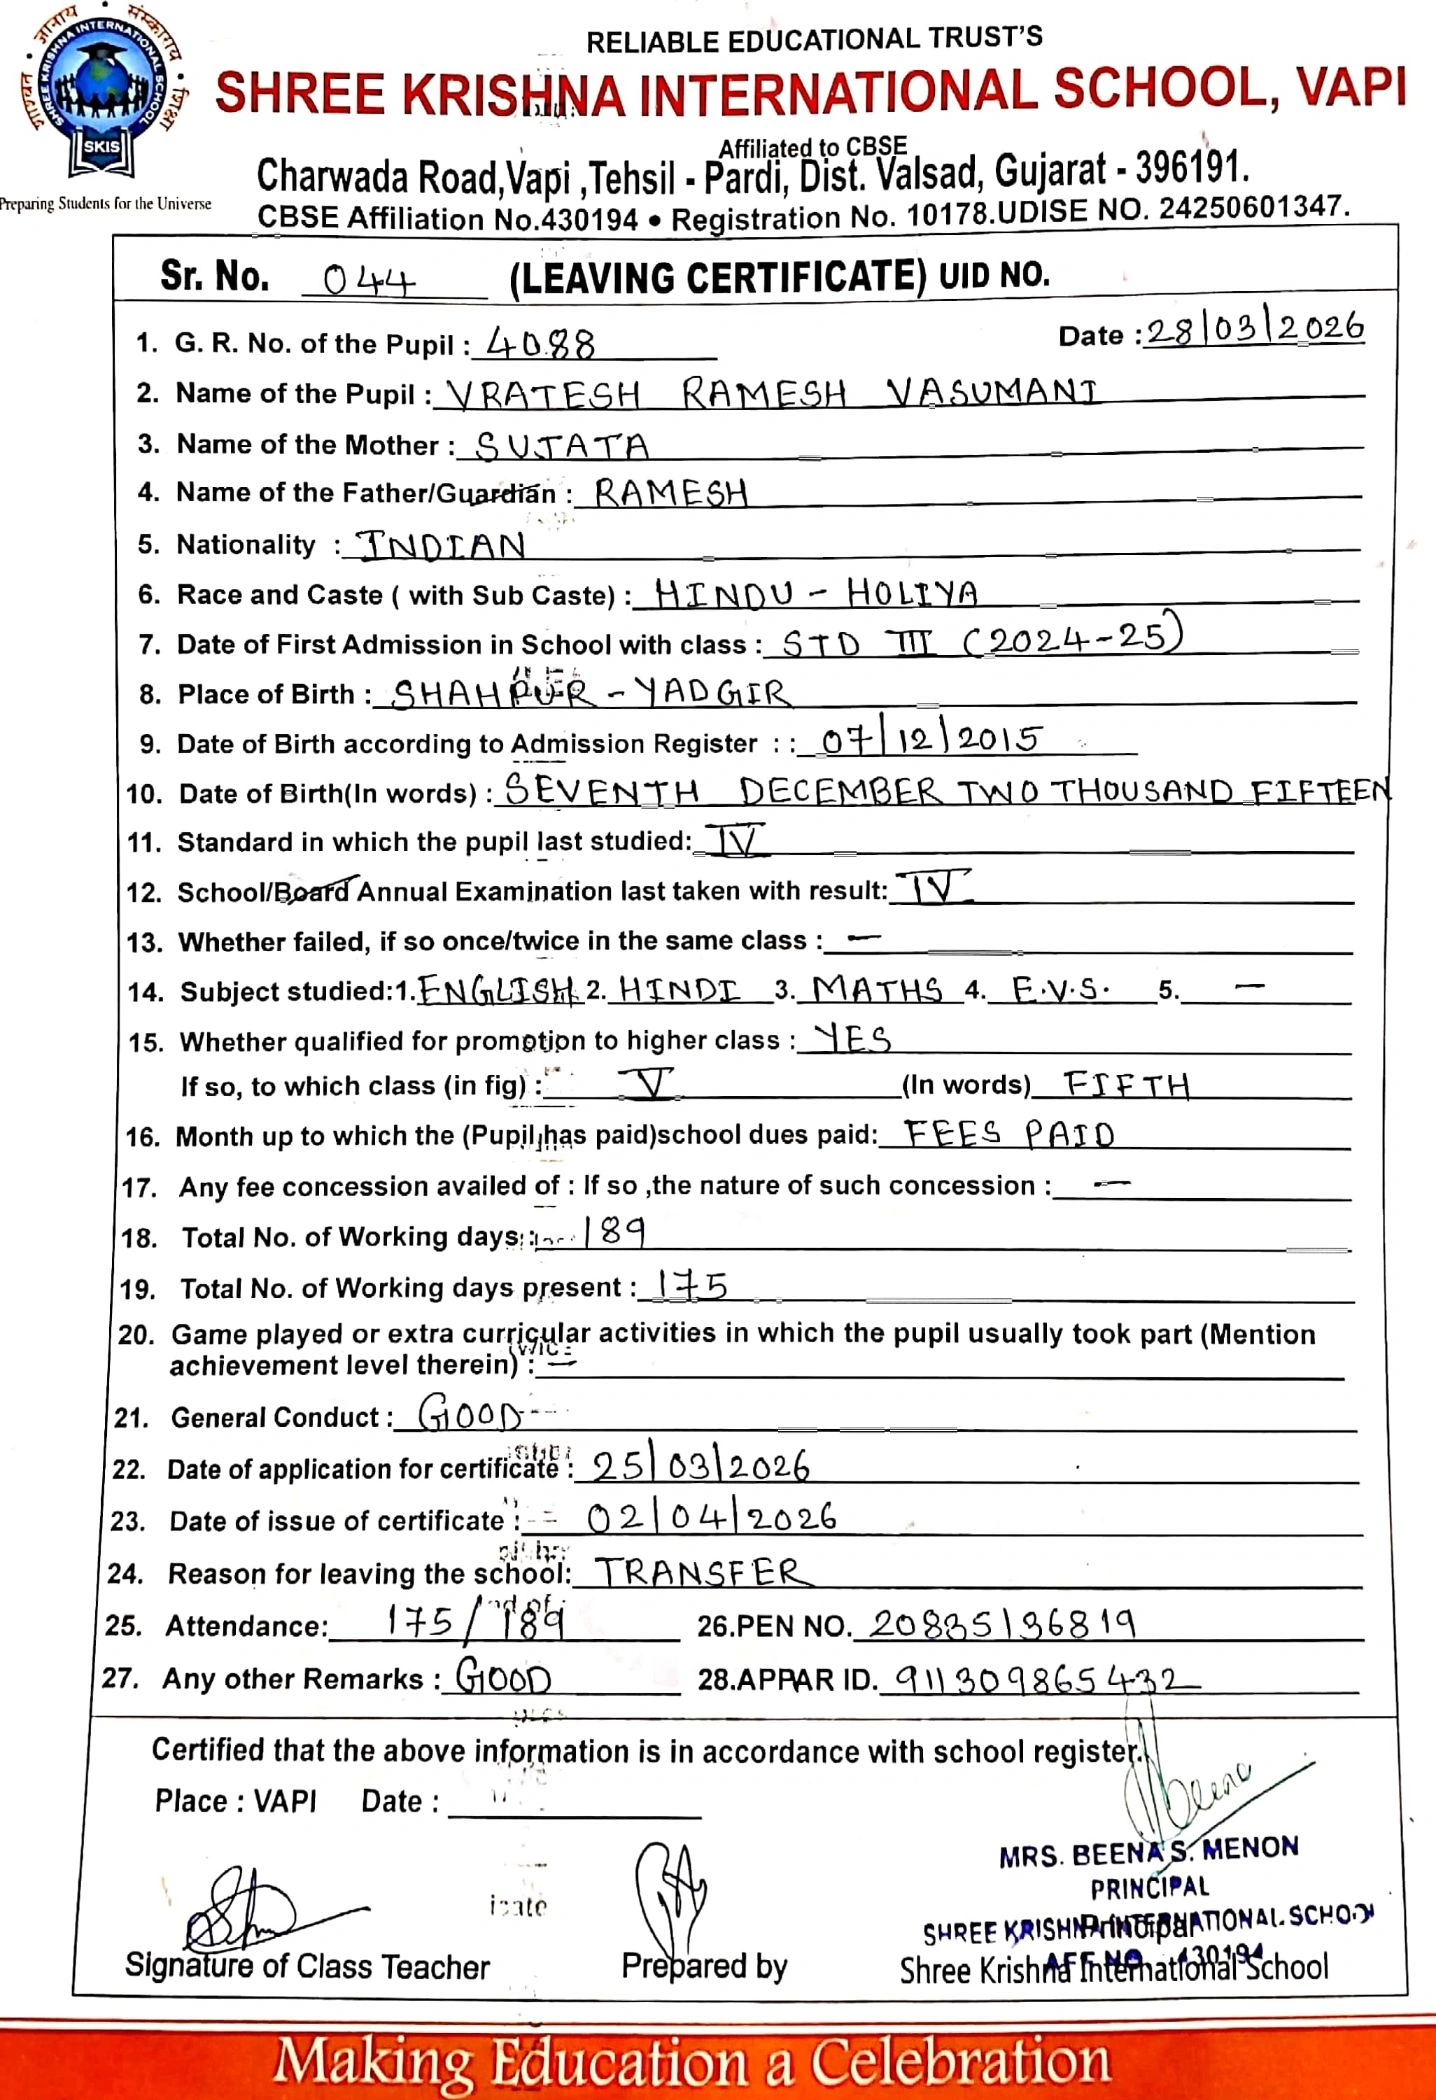 RELIABLE EDUCATIONAL TRUST'S
SHREE KRISHNA INTERNATIONAL SCHOOL, VAPI
Affiliated to CBSE
Charwada Road,Vapi ,Tehsil - Pardi, Dist. Valsad, Gujarat - 396191.
CBSE Affiliation No.430194 • Registration No. 10178.UDISE NO. 24250601347.
SHREE KRISHNA INTERNATIONAL SCHOOL
SKIS
Preparing Students for the Universe
Sr. No. 044 (LEAVING CERTIFICATE) UID NO.
1. G. R. No. of the Pupil : 4088 Date : 28/03/2026
2. Name of the Pupil : VRATESH RAMESH VASUMANI
3. Name of the Mother : SUJATA
4. Name of the Father/Guardian : RAMESH
5. Nationality : INDIAN
6. Race and Caste ( with Sub Caste) : HINDU - HOLIYA
7. Date of First Admission in School with class : STD III (2024-25)
8. Place of Birth : SHAHPUR - YADGIR
9. Date of Birth according to Admission Register : : 07/12/2015
10. Date of Birth(In words) : SEVENTH DECEMBER TWO THOUSAND FIFTEEN
11. Standard in which the pupil last studied: IV
12. School/Board Annual Examination last taken with result: IV
13. Whether failed, if so once/twice in the same class : —
14. Subject studied:1. ENGLISH 2. HINDI 3. MATHS 4. E.V.S. 5. —
15. Whether qualified for promotion to higher class : YES
If so, to which class (in fig) : V (In words) FIFTH
16. Month up to which the (Pupil has paid)school dues paid: FEES PAID
17. Any fee concession availed of : If so ,the nature of such concession : —
18. Total No. of Working days : 189
19. Total No. of Working days present : 175
20. Game played or extra curricular activities in which the pupil usually took part (Mention
achievement level therein) : —
21. General Conduct : GOOD
22. Date of application for certificate : 25/03/2026
23. Date of issue of certificate : 02/04/2026
24. Reason for leaving the school: TRANSFER
25. Attendance: 175/189 26.PEN NO. 20835136819
27. Any other Remarks : GOOD 28.APPAR ID. 911309865432
Certified that the above information is in accordance with school register.
Place : VAPI Date :
Beena
MRS. BEENA S. MENON
PRINCIPAL
SHREE KRISHNA INTERNATIONAL SCHOOL
AFF. NO. 430194
Principal
Signature of Class Teacher Prepared by Shree Krishna International School
Making Education a Celebration